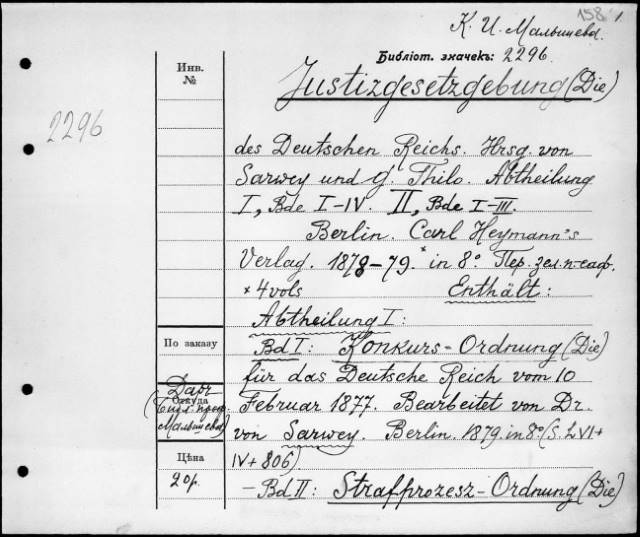 158
К. И. Малышева.
Библіот. значекъ: 2296.
Инв.
№
Justizgesetzgebung (Die)
2296
des Deutschen Reichs. Hrsg. von
Sarwey und G. Thilo. Abtheilung
I, Bde I-IV. II, Bde I-III.
Berlin. Carl Heymann's
Verlag. 1878-79.* in 8° Пер. зел. п-саф.
* 4 vols Enthält:
Abtheilung I:
По заказу
Bd I: Konkurs-Ordnung (Die)
für das Deutsche Reich vom 10
Даръ
Откуда
Малышева)
Februar 1877. Bearbeitet von Dr.
von Sarwey. Berlin. 1879. in 8° (S. LVI+
IV+806)
Цѣна
20р.
- Bd II: Strafprozesz-Ordnung (Die)